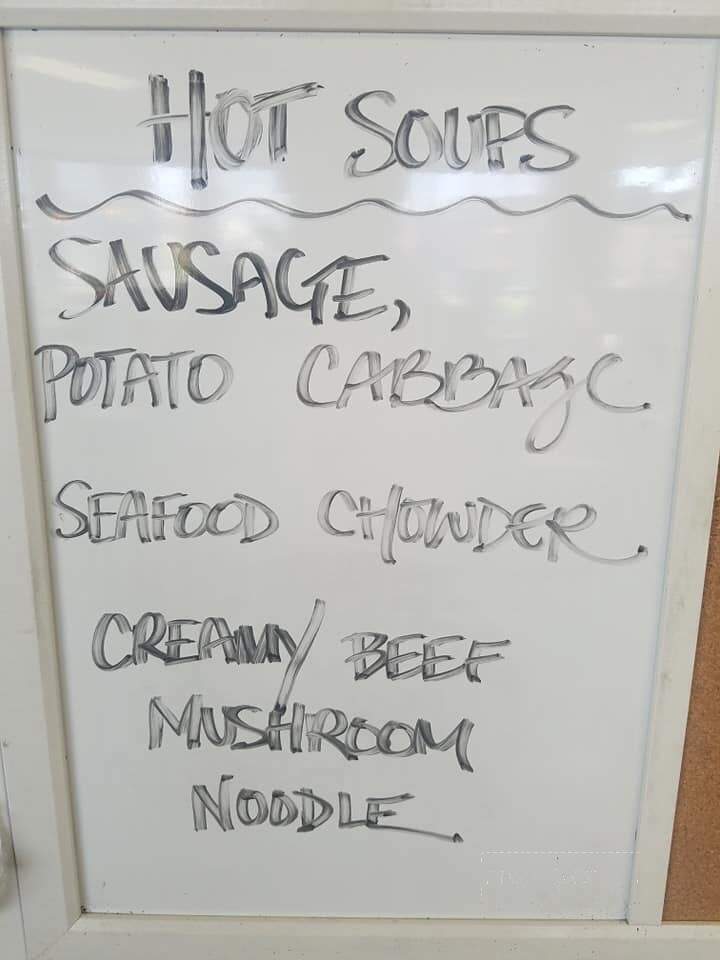 HOT SOUPS
SAUSAGE,
POTATO CABBAgC
SEAFOOD CHOWDER
CREAMY BEEF
MUSHROOM
NOODLE